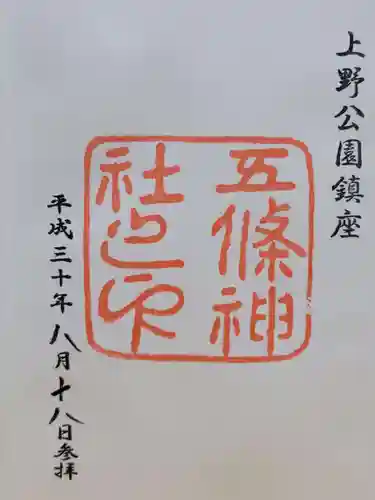 上野公園鎮座
五條神
社之印
平成三十年八月十八日参拝